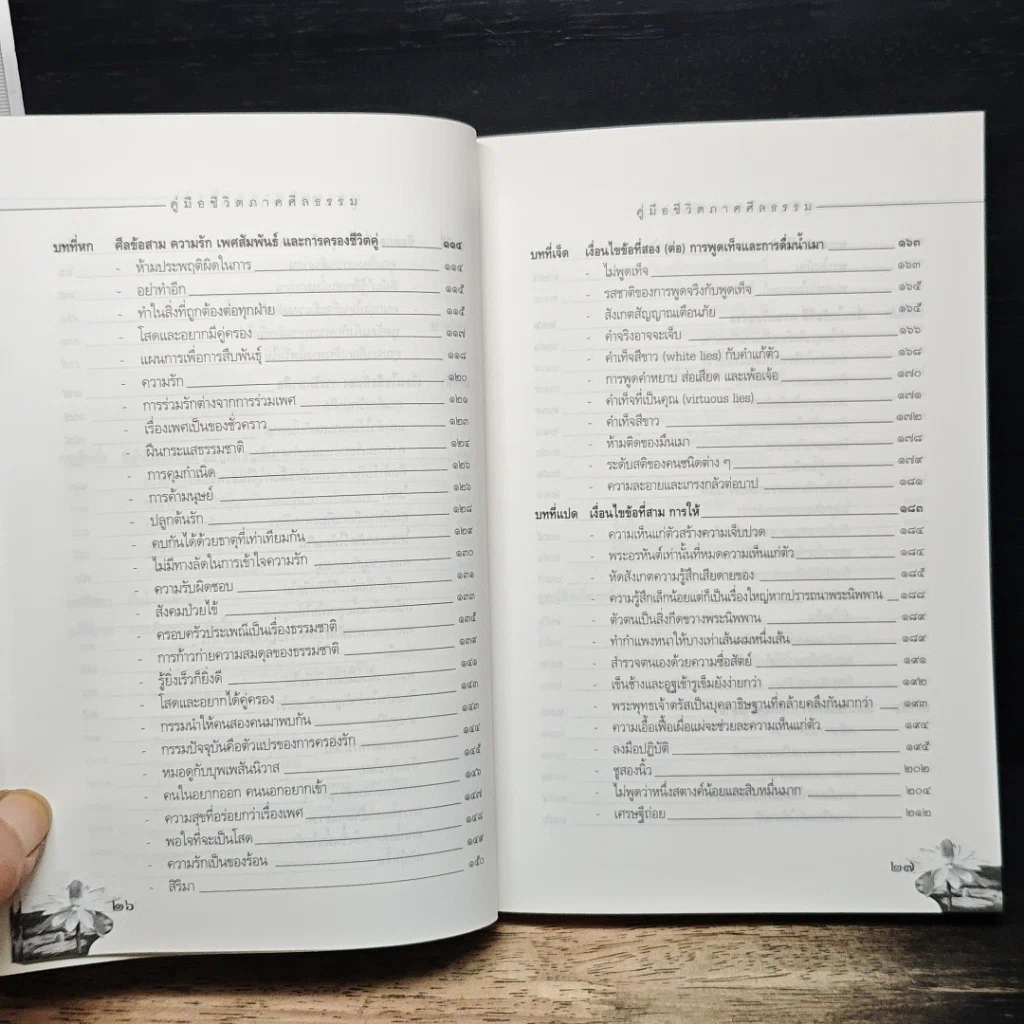 คู่มือชีวิตภาคศีลธรรม
บทที่หก ศีลข้อสาม ความรัก เพศสัมพันธ์ และการครองชีวิตคู่ ๑๑๔
- ห้ามประพฤติผิดในการ ๑๑๔
- อย่าทำอีก ๑๑๕
- ทำในสิ่งที่ถูกต้องต่อทุกฝ่าย ๑๑๕
- โสดและอยากมีคู่ครอง ๑๑๗
- แผนการเพื่อการสืบพันธุ์ ๑๑๘
- ความรัก ๑๒๐
- การร่วมรักต่างจากการร่วมเพศ ๑๒๑
- เรื่องเพศเป็นของชั่วคราว ๑๒๓
- ฝืนกระแสธรรมชาติ ๑๒๔
- การคุมกำเนิด ๑๒๖
- การค้ามนุษย์ ๑๒๖
- ปลูกต้นรัก ๑๒๘
- คบกันได้ด้วยธาตุที่เท่าเทียมกัน ๑๒๙
- ไม่มีทางลัดในการเข้าใจความรัก ๑๓๐
- ความรับผิดชอบ ๑๓๑
- สังคมป่วยไข้ ๑๓๓
- ครอบครัวประเพณีเป็นเรื่องธรรมชาติ ๑๓๕
- การก้าวก่ายความสมดุลของธรรมชาติ ๑๓๙
- รู้ยิ่งเร็วก็ยิ่งดี ๑๔๑
- โสดและอยากได้คู่ครอง ๑๔๓
- กรรมนำให้คนสองคนมาพบกัน ๑๔๓
- กรรมปัจจุบันคือตัวแปรของการครองรัก ๑๔๔
- หมอดูกับบุพเพสันนิวาส ๑๔๕
- คนในอยากออก คนนอกอยากเข้า ๑๔๖
- ความสุขที่อร่อยกว่าเรื่องเพศ ๑๔๗
- พอใจที่จะเป็นโสด ๑๔๘
- ความรักเป็นของร้อน ๑๔๙
- สิริมา ๑๕๐
๒๖
คู่มือชีวิตภาคศีลธรรม
บทที่เจ็ด เงื่อนไขข้อที่สอง (ต่อ) การพูดเท็จและการดื่มน้ำเมา ๑๖๓
- ไม่พูดเท็จ ๑๖๓
- รสชาติของการพูดจริงกับพูดเท็จ ๑๖๕
- สังเกตสัญญาณเตือนภัย ๑๖๕
- คำจริงอาจจะเจ็บ ๑๖๖
- คำเท็จสีขาว (white lies) กับคำแก้ตัว ๑๖๘
- การพูดคำหยาบ ส่อเสียด และเพ้อเจ้อ ๑๗๐
- คำเท็จที่เป็นคุณ (virtuous lies) ๑๗๑
- คำเท็จสีขาว ๑๗๒
- ห้ามติดของมึนเมา ๑๗๘
- ระดับสติของคนชนิดต่าง ๆ ๑๗๙
- ความละอายและเกรงกลัวต่อบาป ๑๘๑
บทที่แปด เงื่อนไขข้อที่สาม การให้ ๑๘๓
- ความเห็นแก่ตัวสร้างความเจ็บปวด ๑๘๔
- พระอรหันต์เท่านั้นที่หมดความเห็นแก่ตัว ๑๘๔
- หัดสังเกตความรู้สึกเสียดายของ ๑๘๕
- ความรู้สึกเล็กน้อยแต่ก็เป็นเรื่องใหญ่หากปรารถนาพระนิพพาน ๑๘๘
- ตัวตนเป็นสิ่งกีดขวางพระนิพพาน ๑๘๙
- ทำกำแพงหนาให้บางเท่าเส้นผมหนึ่งเส้น ๑๘๙
- สำรวจตนเองด้วยความซื่อสัตย์ ๑๙๑
- เข็นช้างและอูฐเข้ารูเข็มยังง่ายกว่า ๑๙๒
- พระพุทธเจ้าตรัสเป็นบุคลาธิษฐานที่คล้ายคลึงกันมากว่า ๑๙๓
- ความเอื้อเฟื้อเผื่อแผ่จะช่วยละความเห็นแก่ตัว ๑๙๔
- ลงมือปฏิบัติ ๑๙๕
- ชูสองนิ้ว ๒๐๒
- ไม่พูดว่าหนึ่งสตางค์น้อยและสิบหมื่นมาก ๒๐๔
- เศรษฐีถ่อย ๒๑๒
๒๗